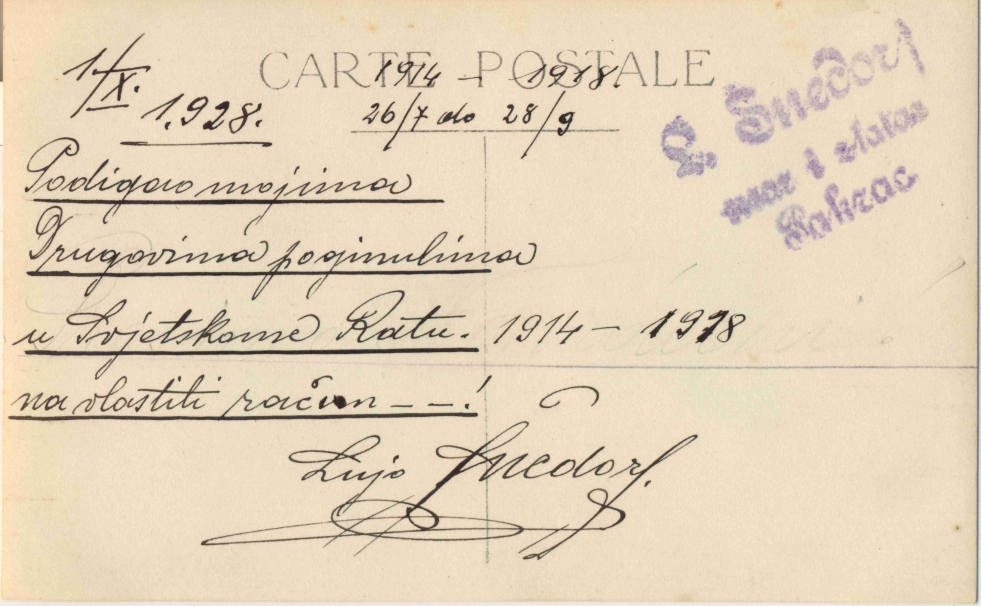 CARTE POSTALE
1/X. 1914 – 1918.
1.928. 26/7 do 28/9
L. Šnedorf
urar i zlatar
Pakrac
Podigao mojima
Drugovima poginulima
u Svjetskome Ratu. 1914 – 1918
na vlastiti račun – – !
Lujo Šnedorf.